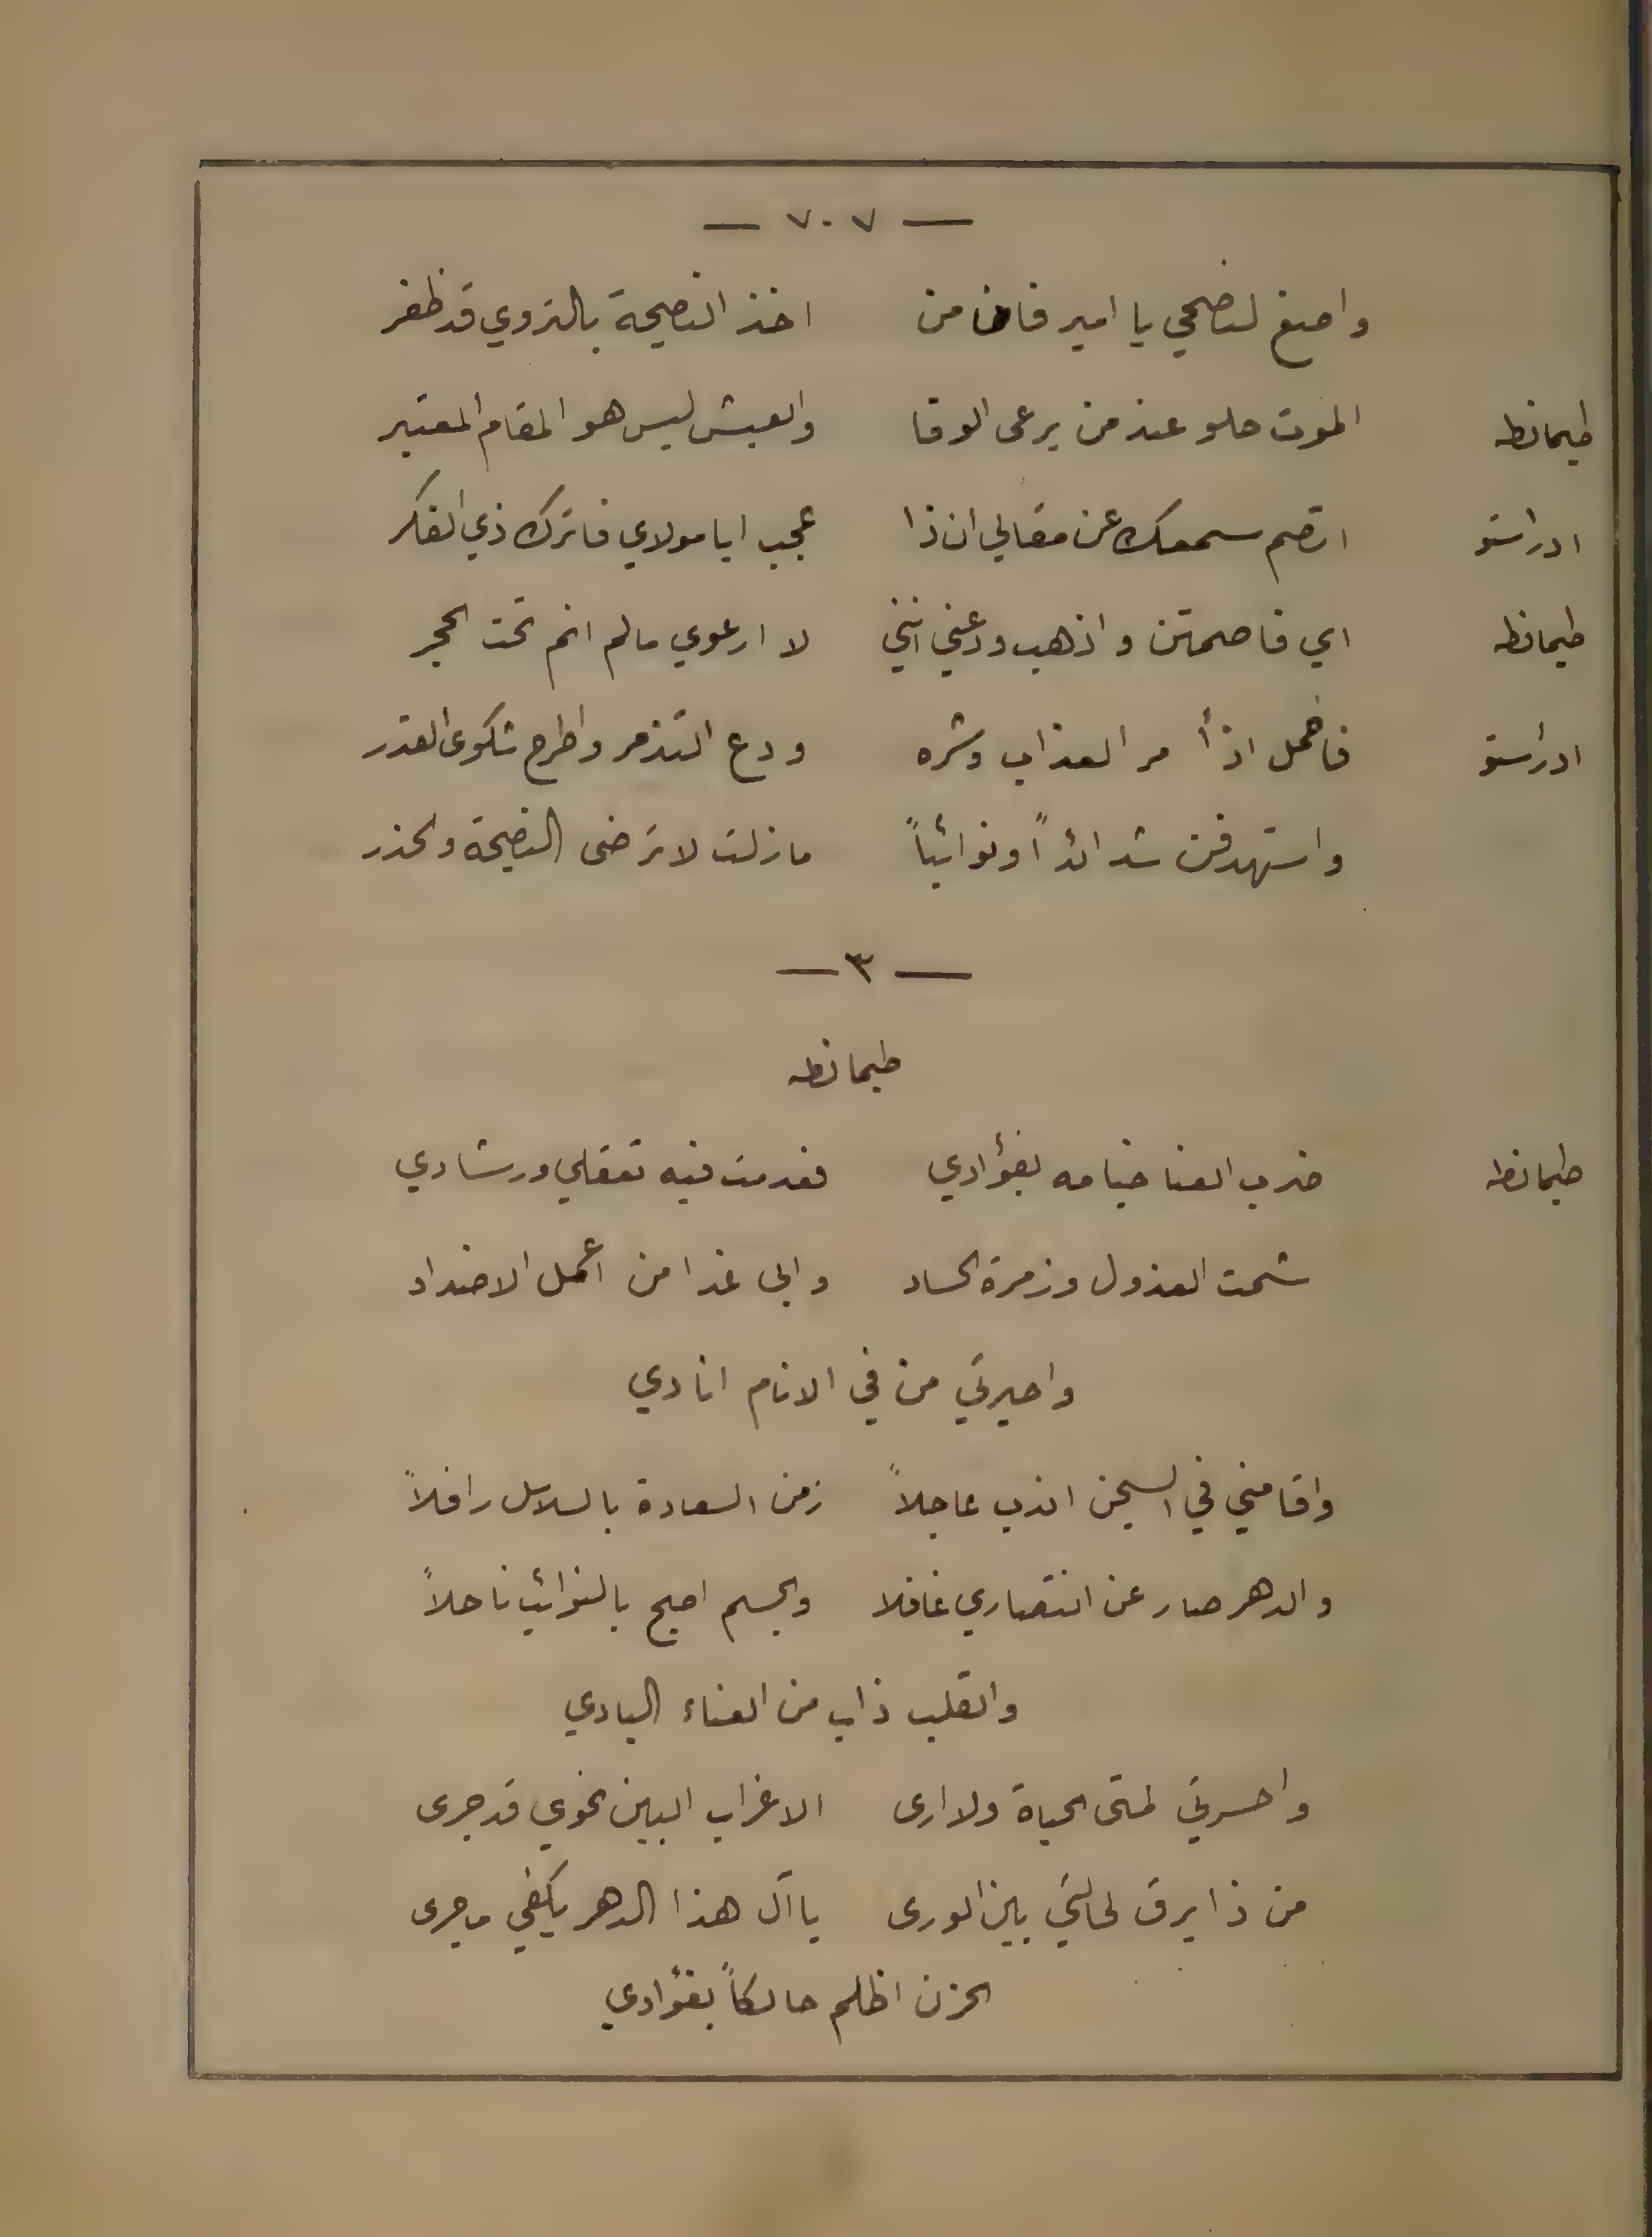 — ٧٠٧ —
واصغ لنصحي يا امير فان من اخذ النصيحة بالتروي قد ظفر
طيمانطه الموت حلو عند من يرعى الوفا والعيش ليس هو المقام المعتبر
ادراستو اتصم سمعك عن مقالي ان ذا عجب ايا مولاي فاترك ذي الفكر
طيمانطه اي فاصمتن واذهب ودعني انني لا ارعوي مالم انم تحت الحجر
ادراستو فاحمل اذاً مر العذاب وشره ودع التذمر واطرح شكوى القدر
واستهدفن شدائداً ونوائباً مازلت لا ترضى النصيحة والحذر
— ٣ —
طيمانطه
طيمانطه ضرب العنا خيامه بفؤادي فعدمت فيه تعقلي ورشادي
شمت العذول وزمرة الحساد وابي غدا من اعمل الاضداد
واحيرتي من في الانام انادي
واقامني في السجن اندب عاجلاً زمن السعادة بالسلاسل رافلاً
والدهر صار عن انتصاري غافلا والجسم اصبح بالنوائب ناحلاً
والقلب ذاب من العناء البادي
واحسرتي لمتى الحياة ولا ارى الا غراب البين نحوي قد جرى
من ذا يرق لحالتي بين الورى يا آل هذا الدهر يكفي ما جرى
الحزن اظلم حالكاً بفؤادي